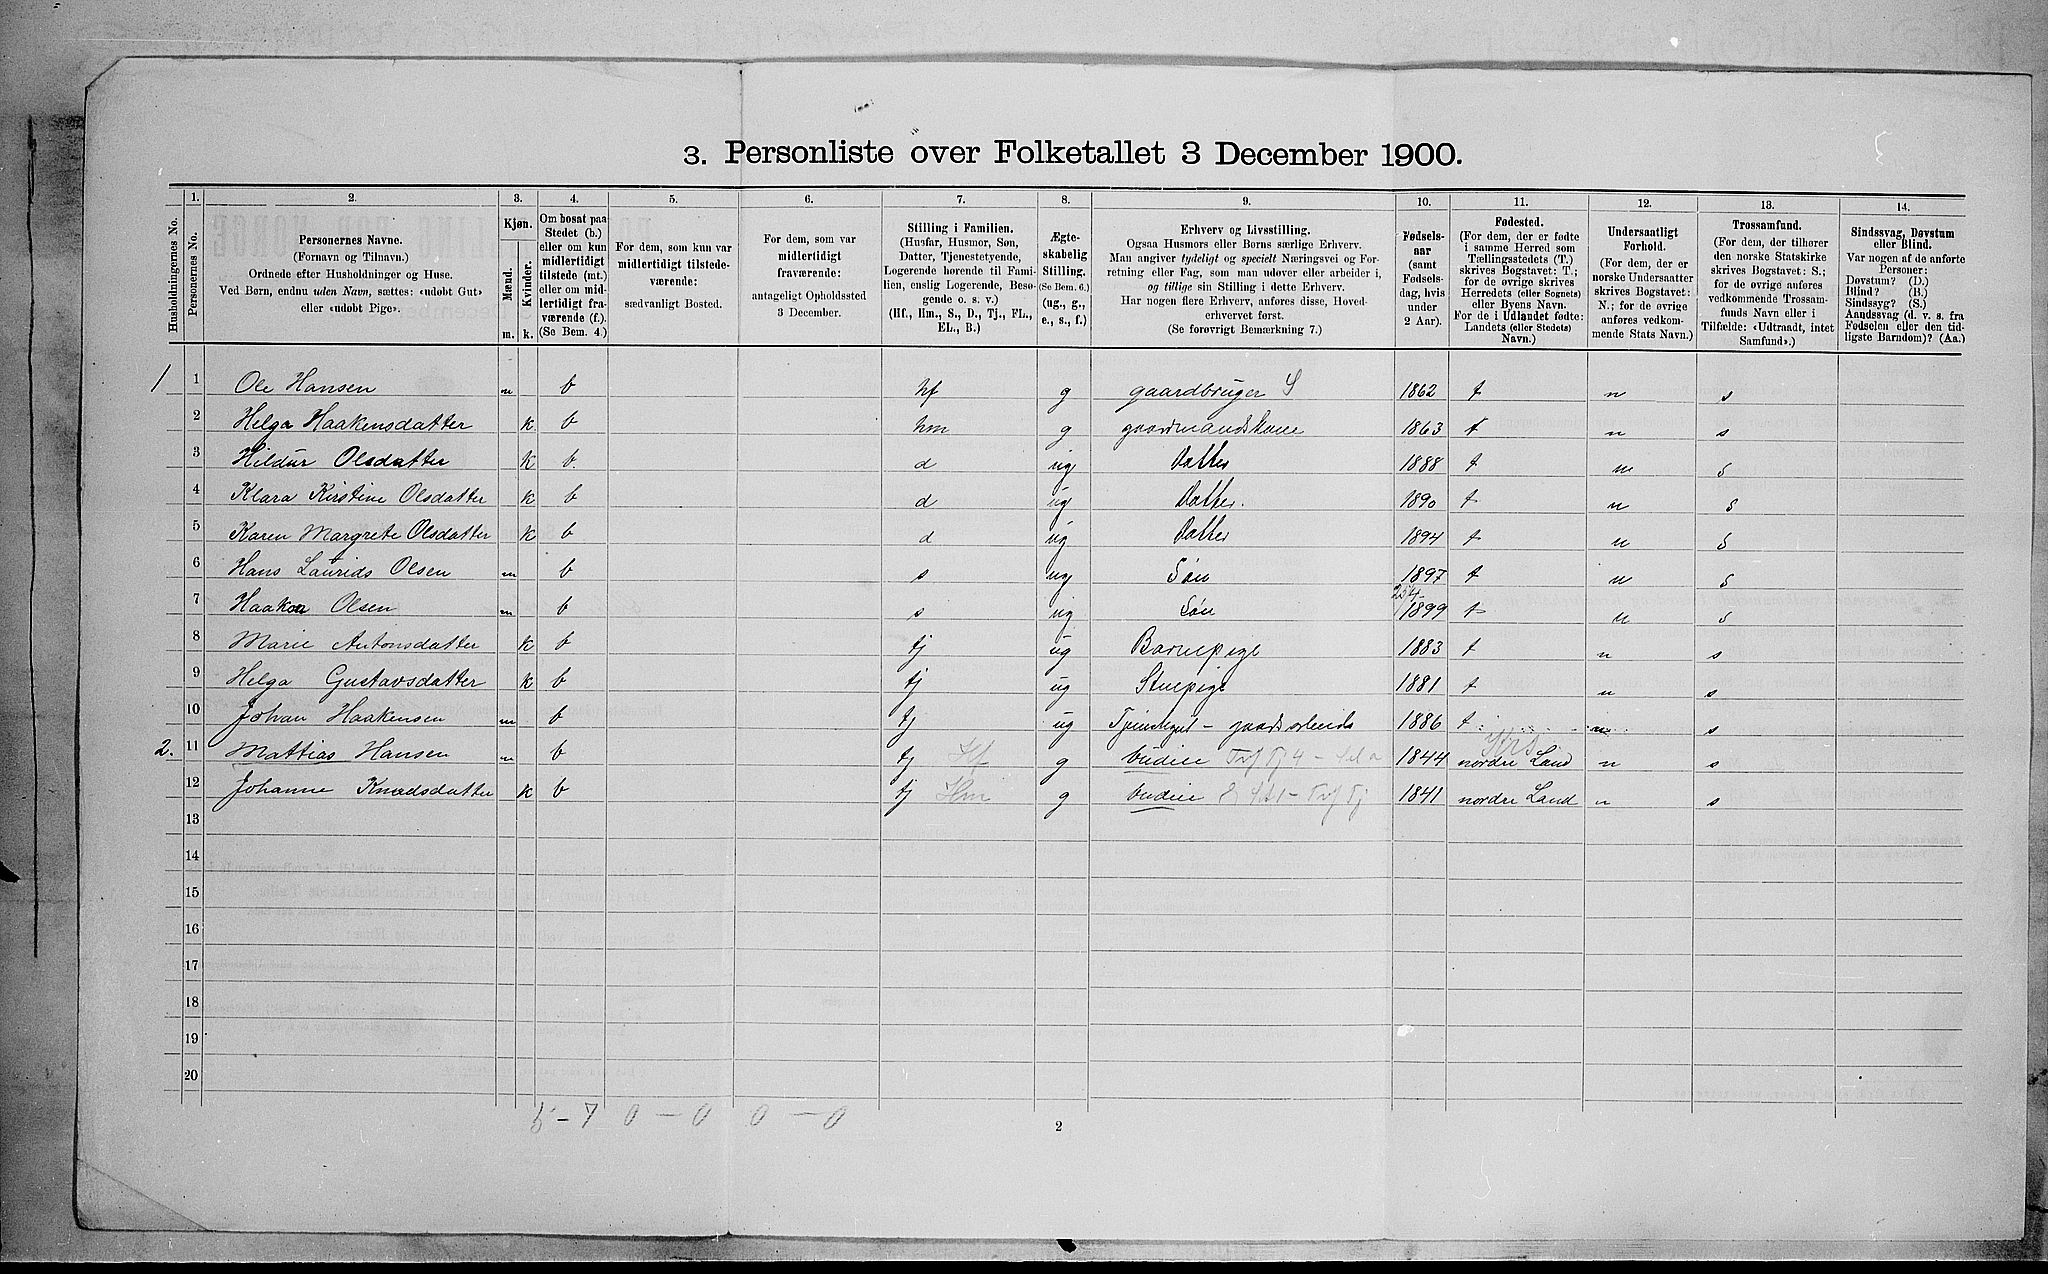 3. Personliste over Folketallet 3 December 1900.
Husholdningernes No.
1. Personernes No.
2. Personernes Navne. (Fornavn og Tilnavn.) Ordnede efter Husholdninger og Huse. Ved Børn, endnu uden Navn, sættes: «udøbt Gut» eller «udøbt Pige».
3. Kjøn. Mænd. m. Kvinder. k.
4. Om bosat paa Stedet (b.) eller om kun midlertidigt tilstede (mt.) eller om midlertidigt fraværende (f.). (Se Bem. 4.)
5. For dem, som kun var midlertidigt tilstedeværende: sædvanligt Bosted.
6. For dem, som var midlertidigt fraværende: antageligt Opholdssted 3 December.
7. Stilling i Familien. (Husfar, Husmor, Søn, Datter, Tjenestetyende, Logerende hørende til Familien, enslig Logerende, Besøgende o. s. v.) (Hf., Hm., S., D., Tj., FL., EL., B.)
8. Ægteskabelig Stilling. (Se Bem. 6.) (ug., g., e., s., f.)
9. Erhverv og Livsstilling. Ogsaa Husmors eller Børns særlige Erhverv. Man angiver tydeligt og specielt Næringsvei og Forretning eller Fag, som man udøver eller arbeider i, og tillige sin Stilling i dette Erhverv. Har nogen flere Erhverv, anføres disse, Hovederhvervet først. (Se forøvrigt Bemærkning 7.)
10. Fødselsaar (samt Fødselsdag, hvis under 2 Aar).
11. Fødested. (For dem, der er fødte i samme Herred som Tællingsstedets (T.) skrives Bogstavet: T.; for de øvrige skrives Herredets (eller Sognets) eller Byens Navn. For de i Udlandet fødte: Landets (eller Stedets) Navn.)
12. Undersaatligt Forhold. (For dem, der er norske Undersaatter skrives Bogstavet: N.; for de øvrige anføres vedkommende Stats Navn.)
13. Trossamfund. (For dem, der tilhører den norske Statskirke skrives Bogstavet: S.; for de øvrige anføres vedkommende Trossamfunds Navn eller i Tilfælde: «Udtraadt, intet Samfund».)
14. Sindssvag, Døvstum eller Blind. Var nogen af de anførte Personer: Døvstum? (D.) Blind? (B.) Sindssyg? (S.) Aandssvag (d. v. s. fra Fødselen eller den tidligste Barndom)? (Aa.)
1 1 Ole Hansen m b hf g gaardbruger S 1862 t n s
2 Helga Haakensdatter k b hm g gaardmandskone 1863 t n s
3 Hildur Olsdatter k b. d ug Datter 1888 t n s
4 Klara Kirstine Olsdatter k b d ug Datter. 1890 t n s
5 Karen Margrete Olsdatter k b d ug Datter 1894 t n s
6 Hans Laurids Olsen m b s ug Søn 1897 t n s
7 Haakon Olsen m b s ug Søn 1899 t n s
8 Marie Antonsdatter k b tj ug Barnepige 1883 t n s
9 Helga Gustavsdatter k b tj ug Stuepige 1881 t n s
10 Johan Haakensen m b tj ug 1886 t n s
2. 11 Mattias Hansen m b tj Hf g budeie 1844 nordre Land n s
12 Johanne Knudsdatter k b tj Hm g budeie 1841 nordre Land n s
13
14
15
16
17
18
19
20
5 - 7 0 - 0 0 - 0
2